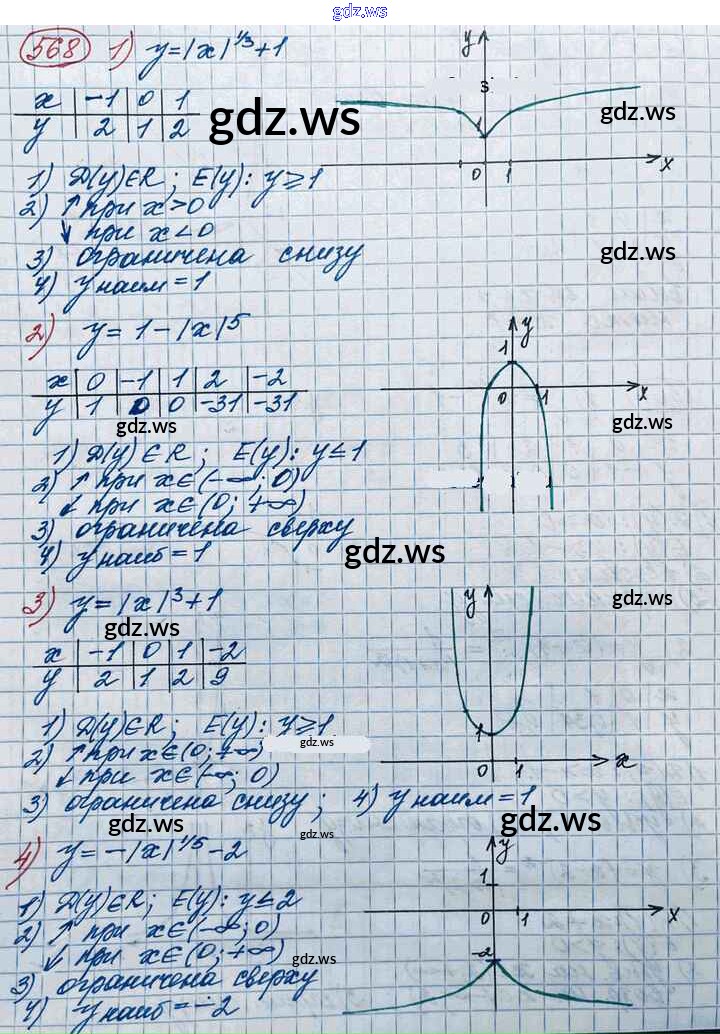 gdz.ws
568 1) y=|x|^1/3+1
x | -1 | 0 | 1
y | 2 | 1 | 2
gdz.ws
y
1
0 1 x
gdz.ws
1) D(y)∈R; E(y): y≥1
2) ↑ при x>0
↓ при x<0
3) ограничена снизу
4) y наим = 1
gdz.ws
2) y = 1-|x|^5
x | 0 | -1 | 1 | 2 | -2
y | 1 | 0 | 0 | -31 | -31
gdz.ws
y
1
0 1 x
gdz.ws
1) D(y)∈R; E(y): y≤1
2) ↑ при x∈(-∞; 0)
↓ при x∈(0; +∞)
3) ограничена сверху
4) y наиб = 1
gdz.ws
3) y=|x|^3+1
gdz.ws
x | -1 | 0 | 1 | -2
y | 2 | 1 | 2 | 9
y
gdz.ws
1
0 1 x
1) D(y)∈R; E(y): y≥1
2) ↑ при x∈(0; +∞)
gdz.ws
↓ при x∈(-∞; 0)
3) ограничена снизу; 4) y наим = 1
gdz.ws
gdz.ws
gdz.ws
4) y=-|x|^1/5-2
y
1
0 1 x
-2
1) D(y)∈R; E(y): y≤2
2) ↑ при x∈(-∞; 0)
↓ при x∈(0; +∞)
gdz.ws
3) ограничена сверху
4) y наиб = -2
gdz.ws